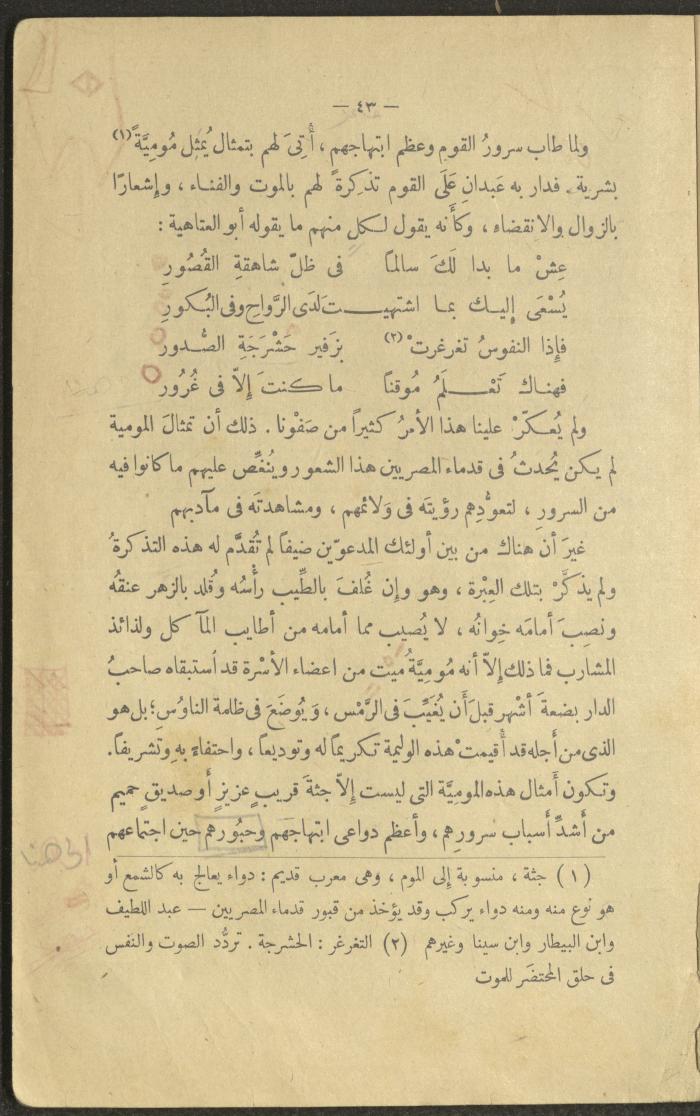 — ٤٣ —
ولما طاب سرورُ القوم وعظم ابتهاجهم ، أُتِىَ لهم بتمثال يُمثِل مُومِيَّةً (١)
بشرية . فدار به عَبدانِ عَلَى القوم تذكِرةً لهم بالموت والفناء ، وإشعارًا
بالزوال والانقضاء ، وكأَنه يقول لـكل منهم ما يقوله أبو العتاهية :
عِشْ ما بدا لَكَ سالماً فى ظلّ شاهقةِ القُصُورِ
يُسْعَى إليـك بمـا اشتهيـت لَدَى الرَّواحِ وفى البُـكورِ
فإِذا النفوسُ تغرغرتْ (٢) بزَفير حَشْرَجَةِ الصُّدور
فهنـاك تَعْـلَمُ مُوقناً ما كنتَ إِلاّ فى غُرُور
ولم يُعـكّرْ علينا هذا الأمرُ كثيراً من صَفْونا . ذلك أن تمثالَ المومية
لم يكن يُحدثُ فى قدماء المصريين هذا الشعور ويُنغِّص عليهم ما كانوا فيه
من السرورِ ، لتعوُّدِهم رؤيتَه فى وَلائمهم ، ومشاهدتَه فى مآدبهم
غيرَ أن هناك من بين أولئك المدعوّين ضيفاً لم تُقدَّم له هذه التذكرةُ
ولم يذكَّرْ بتلك العِبْرة ، وهو وإن غُلفَ بالطِّيب رأْسُه وقُلد بالزهر عنقُه
ونصِبَ أمامَه خِوانُه ، لا يُصيب مما أمامه من أطايب المآكل ولذائذ
المشارب فما ذلك إِلاّ أنه مُومِيَّةُ ميت من اعضاء الأسْرة قد اُستبقاه صاحبُ
الدار بضعةَ أَشْهرٍ قبل أَن يُغَيَّبَ فى الرَّمْس ، وَيُوضَعَ فى ظلمة الناوُسِ؛ بل هو
الذى من أَجله قد أُقيمتْ هذه الوليمة تـكريماً له وتوديعاً ، واحتفاءً بهِ وتشريفاً.
وتـكون أَمثال هذه الموميَّة التى ليست إِلاّ جثةَ قريبٍ عزيزٍ أَو صديقٍ حميم
من أَشدِّ أَسباب سرورِهم ، وأعظم دواعى ابتهاجهم وحبُورهم حين اجتماعهم
(١) جثة ، منسوبة إلى الموم ، وهى معرب قديم : دواء يعالج به كالشمع أو
هو نوع منه ومنه دواء يركب وقد يؤخذ من قبور قدماء المصريين — عبد اللطيف
وابن البيطار وابن سينا وغيرهم (٢) التغرغر : الحشرجة . تردُّد الصوت والنفس
فى حلق المحتضَر للموت